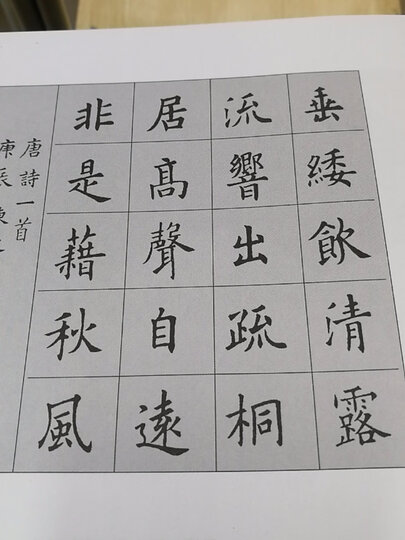 垂緌飲清露
流響出疏桐
居高聲自遠
非是藉秋風
唐詩一首
庚辰